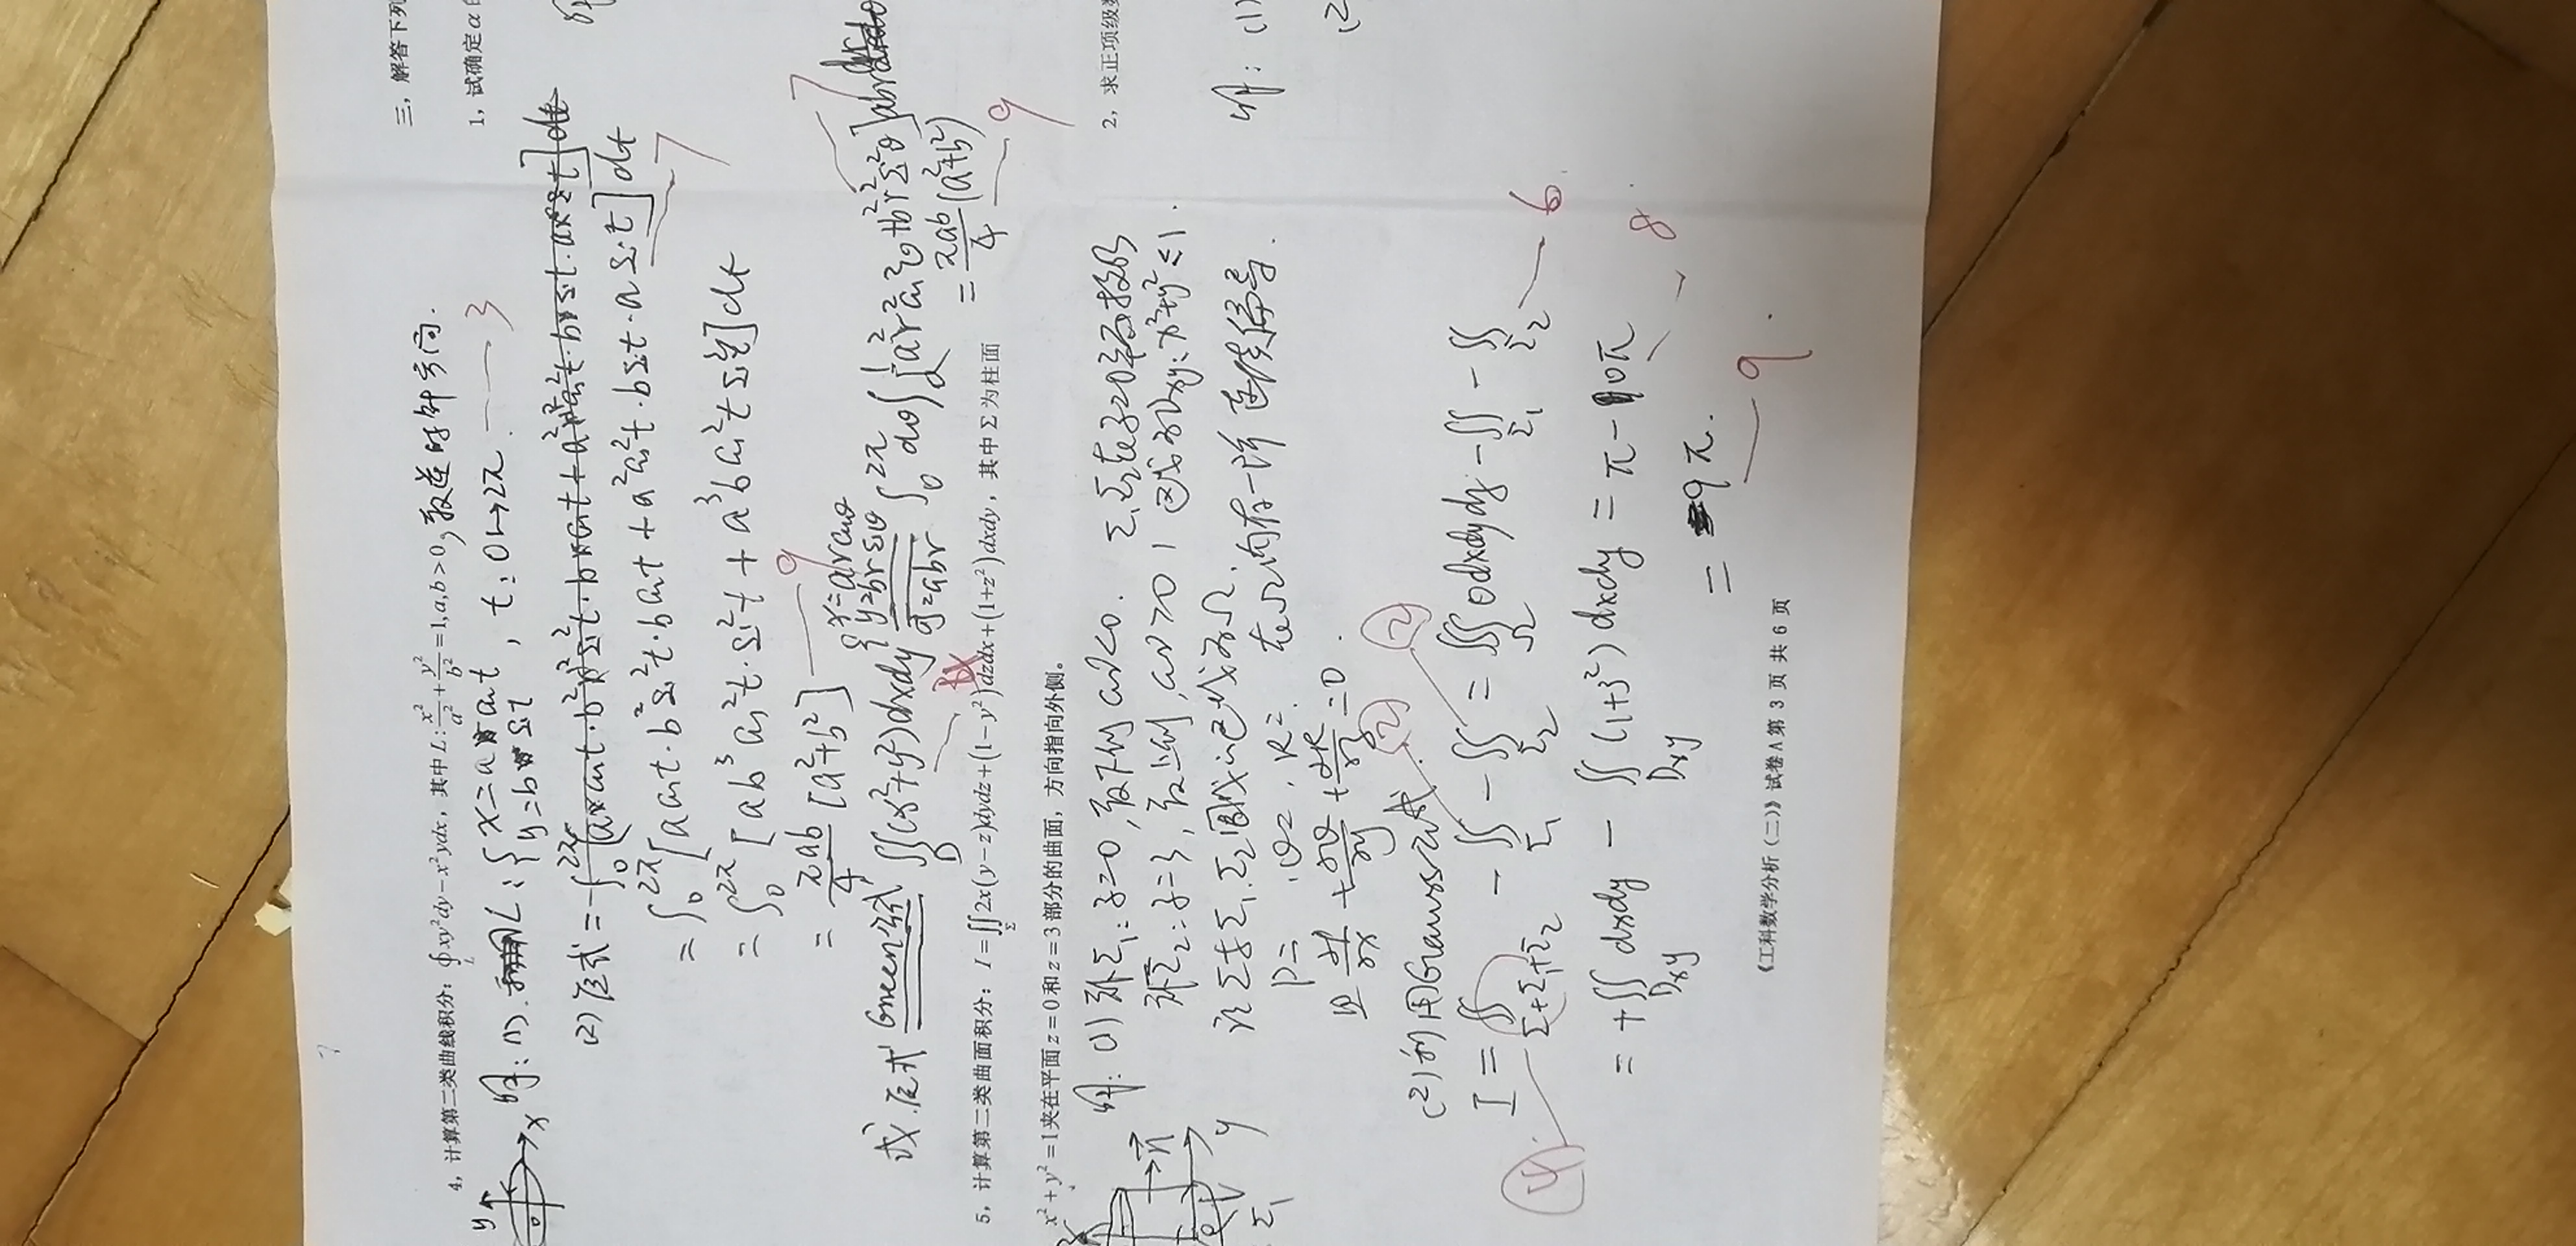 4，计算第二类曲线积分：∮_L xy²dy − x²ydx，其中 L: x²/a² + y²/b² = 1, a,b > 0，取逆时针方向.
解：(1). L：{ x = a cos t
y = b sin t , t: 0→2π. 3
(2) 原式 =
= ∫₀^{2π} [a cos t · b² sin² t · b cos t + a² cos² t · b sin t · a sin t] dt 7
= ∫₀^{2π} [ab³ cos² t · sin² t + a³b cos² t sin² t] dt
= πab/4 [a² + b²] 9
或. 原式 Green公式 ∬_D (x² + y²)dxdy { x = ar cosθ
y = br sinθ
J = abr ∫₀^{2π} dθ ∫₀¹ [a²r² cos²θ + b²r² sin²θ] abr 7
= πab/4 (a² + b²) 9
5，计算第二类曲面积分：I = ∬_Σ 2x(y−z)dydz + (1−y²)dzdx + (1+z²)dxdy，其中 Σ 为柱面
x² + y² = 1 夹在平面 z = 0 和 z = 3 部分的曲面，方向指向外侧。
解：(1) 补 Σ₁: z = 0, 取下侧 cosγ<0. Σ₁Σ₂在z=0平面投影
补Σ₂: z = 3, 取上侧, cosγ>0, 区域为Dxy: x²+y² ≤ 1.
记 Σ与Σ₁, Σ₂围成的区域为Ω.
P= , Q= , R= . 在Ω内有一阶连续偏导.
且 ∂P/∂x + ∂Q/∂y + ∂R/∂z = 0.
(2) 利用Gauss公式
I = ∯_{Σ+Σ₁+Σ₂} − ∬_{Σ₁} − ∬_{Σ₂} = ∭_Ω 0dxdydz − ∬_{Σ₁} − ∬_{Σ₂} 6
= + ∬_{Dxy} dxdy − ∬_{Dxy} (1+3²) dxdy = π − 10π 8
= −9π. 9
《工科数学分析（二）》试卷A 第 3 页 共 6 页
三，解答下列
1，试确定α
解
2，求正项级数
解：(1)
(2